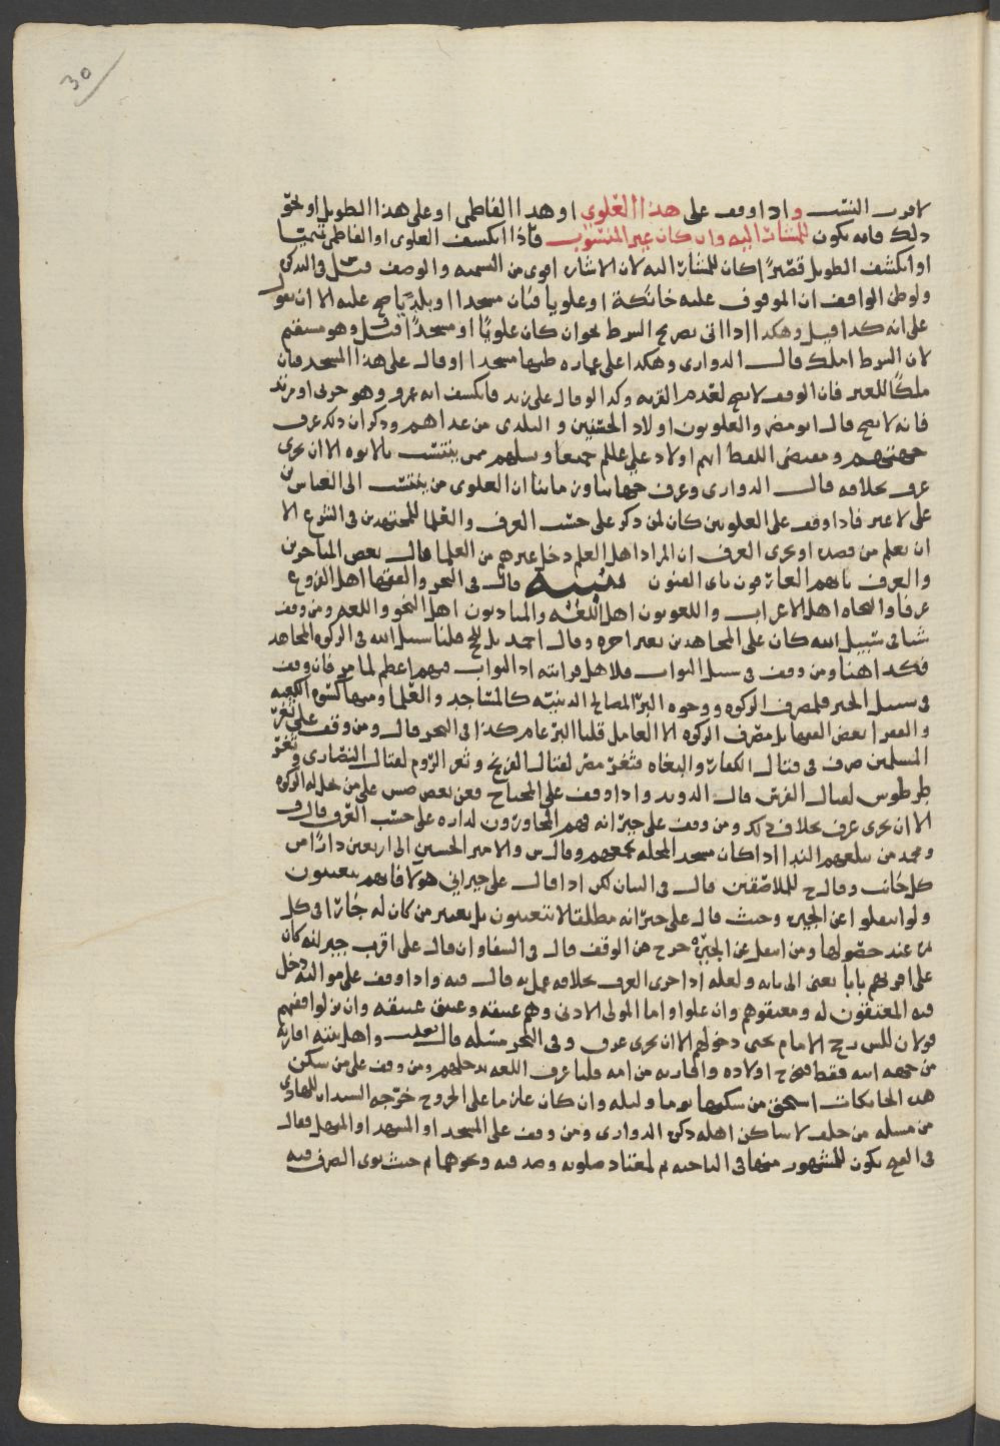 30
لاقرب النسب واذا وقف على هذا العلوي او هذا الفاطمي او على هذا الطويل او نحو
ذلك فانه يكون للمشار اليه وان كان غير المنسوب فاذا انكشف العلوي او الفاطمي تميميا
او انكشف الطويل قصيرا كان للمشار اليه لان الاشارة اقوى من التسمية والوصف
ولو ظن الواقف ان الموقوف عليه خانكة او علويا فبان مسجدا او بلديا صح عليه الا ان يقول
على انه كذا قيل وهكذا اذا اتى بصريح الشرط نحو ان كان علويا او مسجدا قيل وهو مستقيم
لان الشرط املك قال الدواري وهكذا على عمارة ظنها مسجدا او قال على هذا المسجد فبان
ملكا للغير فان الوقف لا يصح لعدم القربة وكذا لو قال على زيد فانكشف انه عمرو وهو حربي او مرتد
فانه لا يصح قال ابو مضر والعلويون اولاد الحسنين والبلدي من عداهم وذكر ان ذلك عرف
جهتهم ومقتضى اللفظ انهم اولاد علي علم جميعا ونسلهم ممن ينتسب بالابوة الا ان يجري
عرف بخلافه قال الدواري وعرف جهاتنا وزماننا ان العلوي من ينتسب الى العباس بن
علي لا غير فاذا وقف على العلويين كان لمن ذكر على حسب العرف والعلما للمجتهدين في الشرع الا
ان يعلم من قصده او يجري العرف ان المراد اهل العلم دخل غيرهم من العلما قال بعض المتاخرين
والعرف بانهم العارفون باي الفنون تنبيه قال في البحر والفقها اهل الفروع
عرفا والنحاه اهل الاعراب واللغويون اهل اللغه والمتادبون اهل النحو واللغه ومن وقف
شيا في سبيل الله كان على المجاهدين بغير اجره وقال احمد بل للحج قلنا سبيل الله في الزكوه المجاهد
فكذا هنا ومن وقف في سبيل الثواب فلاهل قرابته اذ الثواب فيهم اعظم لما مر فان وقف
في سبيل الخير فلمصرف الزكوه ووجوه البر المصالح الدينيه كالمساجد والعلما ومنها كسوة الكعبه
والفقرا بعض الفقها بل مصرف الزكوه الا العامل قلنا البر عام كذا في البحر قال ومن وقف على ثغر
المسلمين صرف في قتال الكفار والبغاه فثغر مصر لقتال الفرنج وثغر الروم لقتال النصارى وثغر
طرطوس لقتال الفرس قال الدويد واذا وقف على المحتاج فعن بعض على من تحل له الزكوه
الا ان يجري عرف بخلاف ذلك ومن وقف على جيرانه فهم المجاورون لداره على حسب العرف
ومحمد من يبلغهم الندا اذا كان مسجد المحله يجمعهم وقال س والامير الحسين الى اربعين دارا من
كل جانب وقال ح للملاصقين قال في البيان لكن اذا قال على جيراني هولا فانهم يتعينون
ولو انتقلوا عن الجيره وحيث قال على جيرانه مطلقا لا يتعينون بل يعتبر من كان له جارا في كل
عند حصولها ومن انتقل عن الجيره خرج عن الوقف قال في الشفا وان قال على اقرب جيرانه كان
على اقربهم بابا يعني الى بابه ولعله اذا جرى العرف بخلافه عمل به قال فيه واذا وقف على مواليه دخل
فيه المعتقون له ومعتقوهم وان علوا واما المولى الادنى وهم عتيقه وعتيق عتيقه وان نزلوا ففيهم
قولان للس رجح الامام يحيى دخولهم الا ان يجري عرف وفي البحر مسئلة واهل بيته اقاربه
من جهه ابيه فقط فيخرج اولاده واقاربه من امه قلنا عرف اللغه يدخلهم ومن وقف على من سكن
هذه الخانكات استحق من سكنها يوما وليله وان كان عازما على الخروج خرجه السيدان للهادي
من مسله من حلف لا ساكن اهله ذكره الدواري ومن وقف على المسجد او المشهد او المنهل فقال
في الفقيه يكون للمشهور منها في الناحيه ثم لمعتاد صلوته وصدقته ونحوهما ثم حيث نوى الصرف فيه